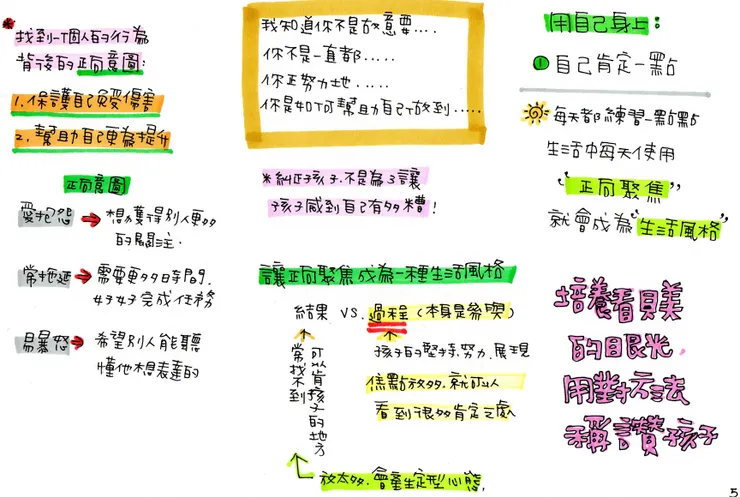 找到一個人的行為
背後的正向意圖:
1.保護自己免受傷害
2.幫助自己更為提升
正向意圖
愛抱怨→想獲得別人更多
的關注.
常拖延→需要更多時間,
好好完成任務
易暴怒→希望別人能聽
懂他想表達的
我知道你不是故意要....
你不是一直都.....
你正努力地.....
你是如何幫助自己做到.....
*糾正孩子.不是為了讓
孩子感到自己有多糟!
讓正向聚焦成為一種生活風格
結果 VS.過程(本身是多突)
孩子的堅持.努力.展現
焦點放多.就可以
看到很多肯定之處
可以肯孩子的地方
常找不到
放太多.會產生定型心態,
用自己身上:
①自己肯定一點
每天都練習一點點
生活中每天使用
“正向聚焦”
就會成為“生活風格”
培養看見美
的眼光,
用對方法
稱讚孩子
5